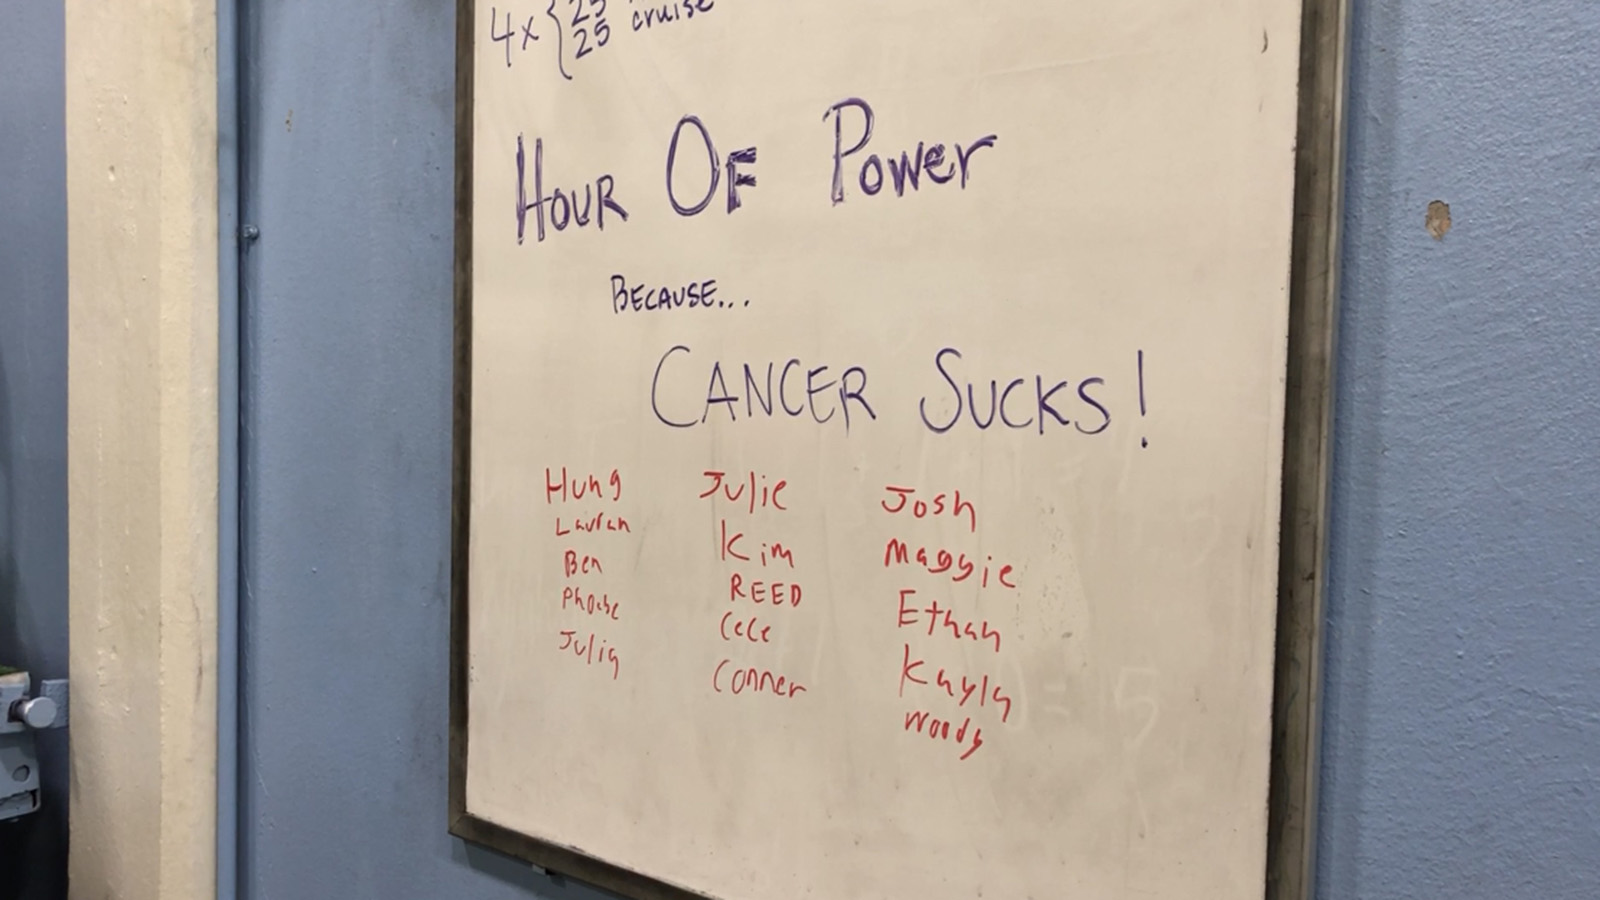 4x { 25
25 cruise
Hour Of Power
Because...
Cancer Sucks!
Hung Julie Josh
Lauran Kim Maggie
Ben REED Ethan
Phoebe CeCe Kayla
Julia Conner Woody